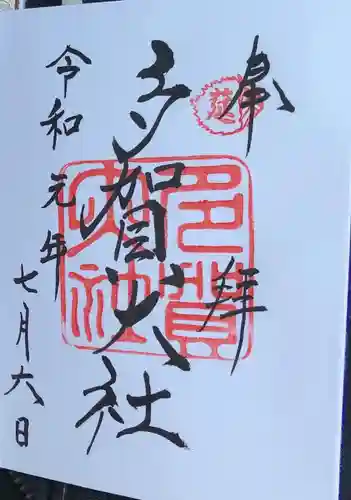 奉拝
多賀大社
令和元年七月六日
多賀大社